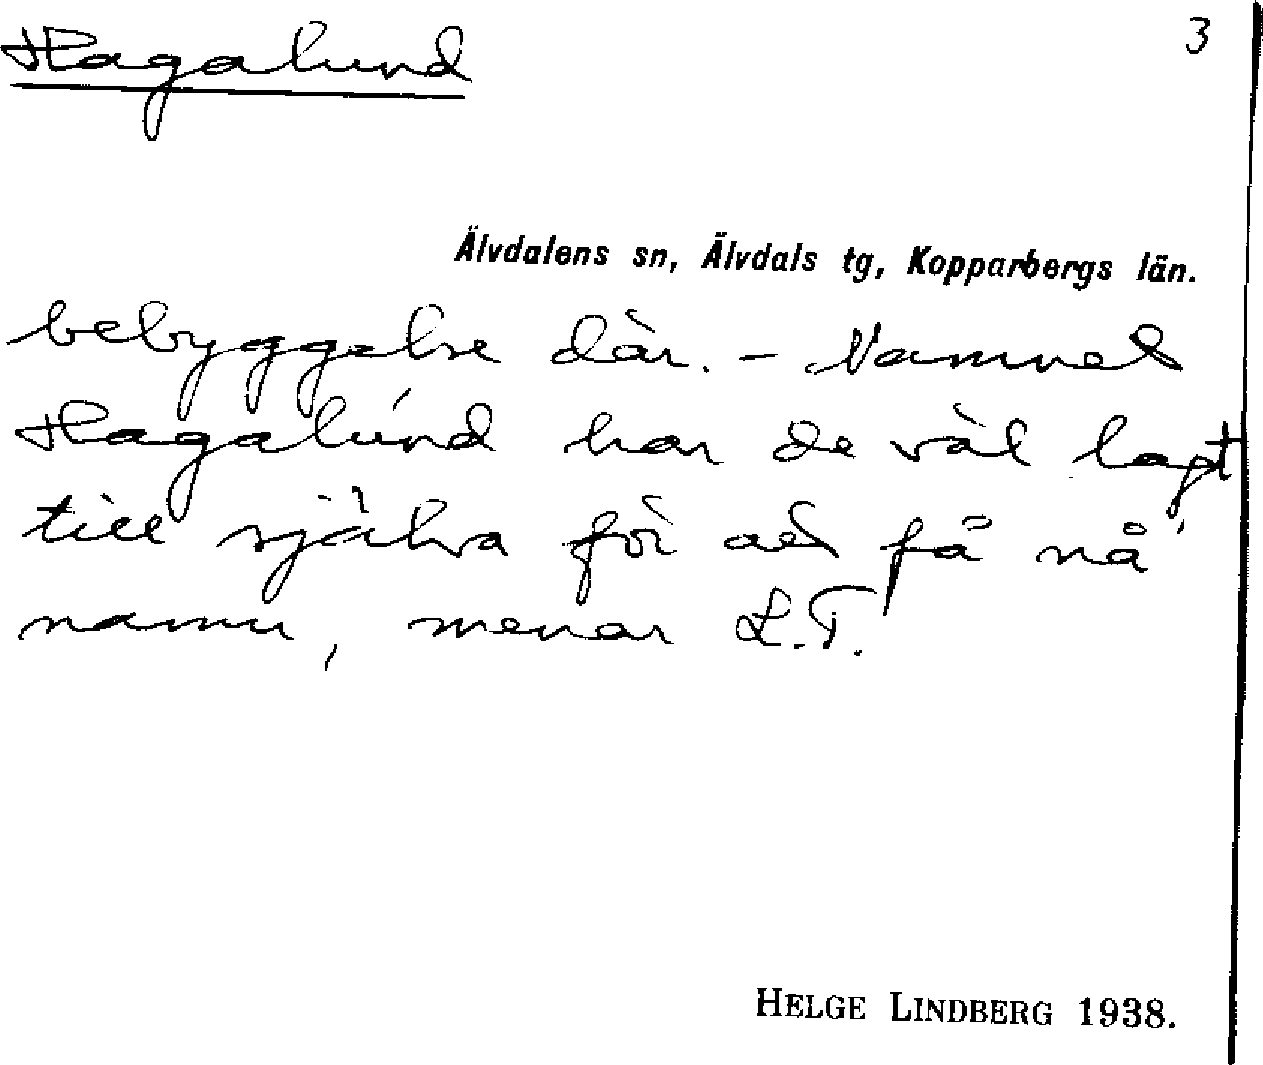 Hagalund
3
Älvdalens sn, Älvdals tg, Kopparbergs län.
bebyggelse där. – Namnet
Hagalund har de väl lagt
till själva för att få nå'
namn, menar L.T.
HELGE LINDBERG 1938.